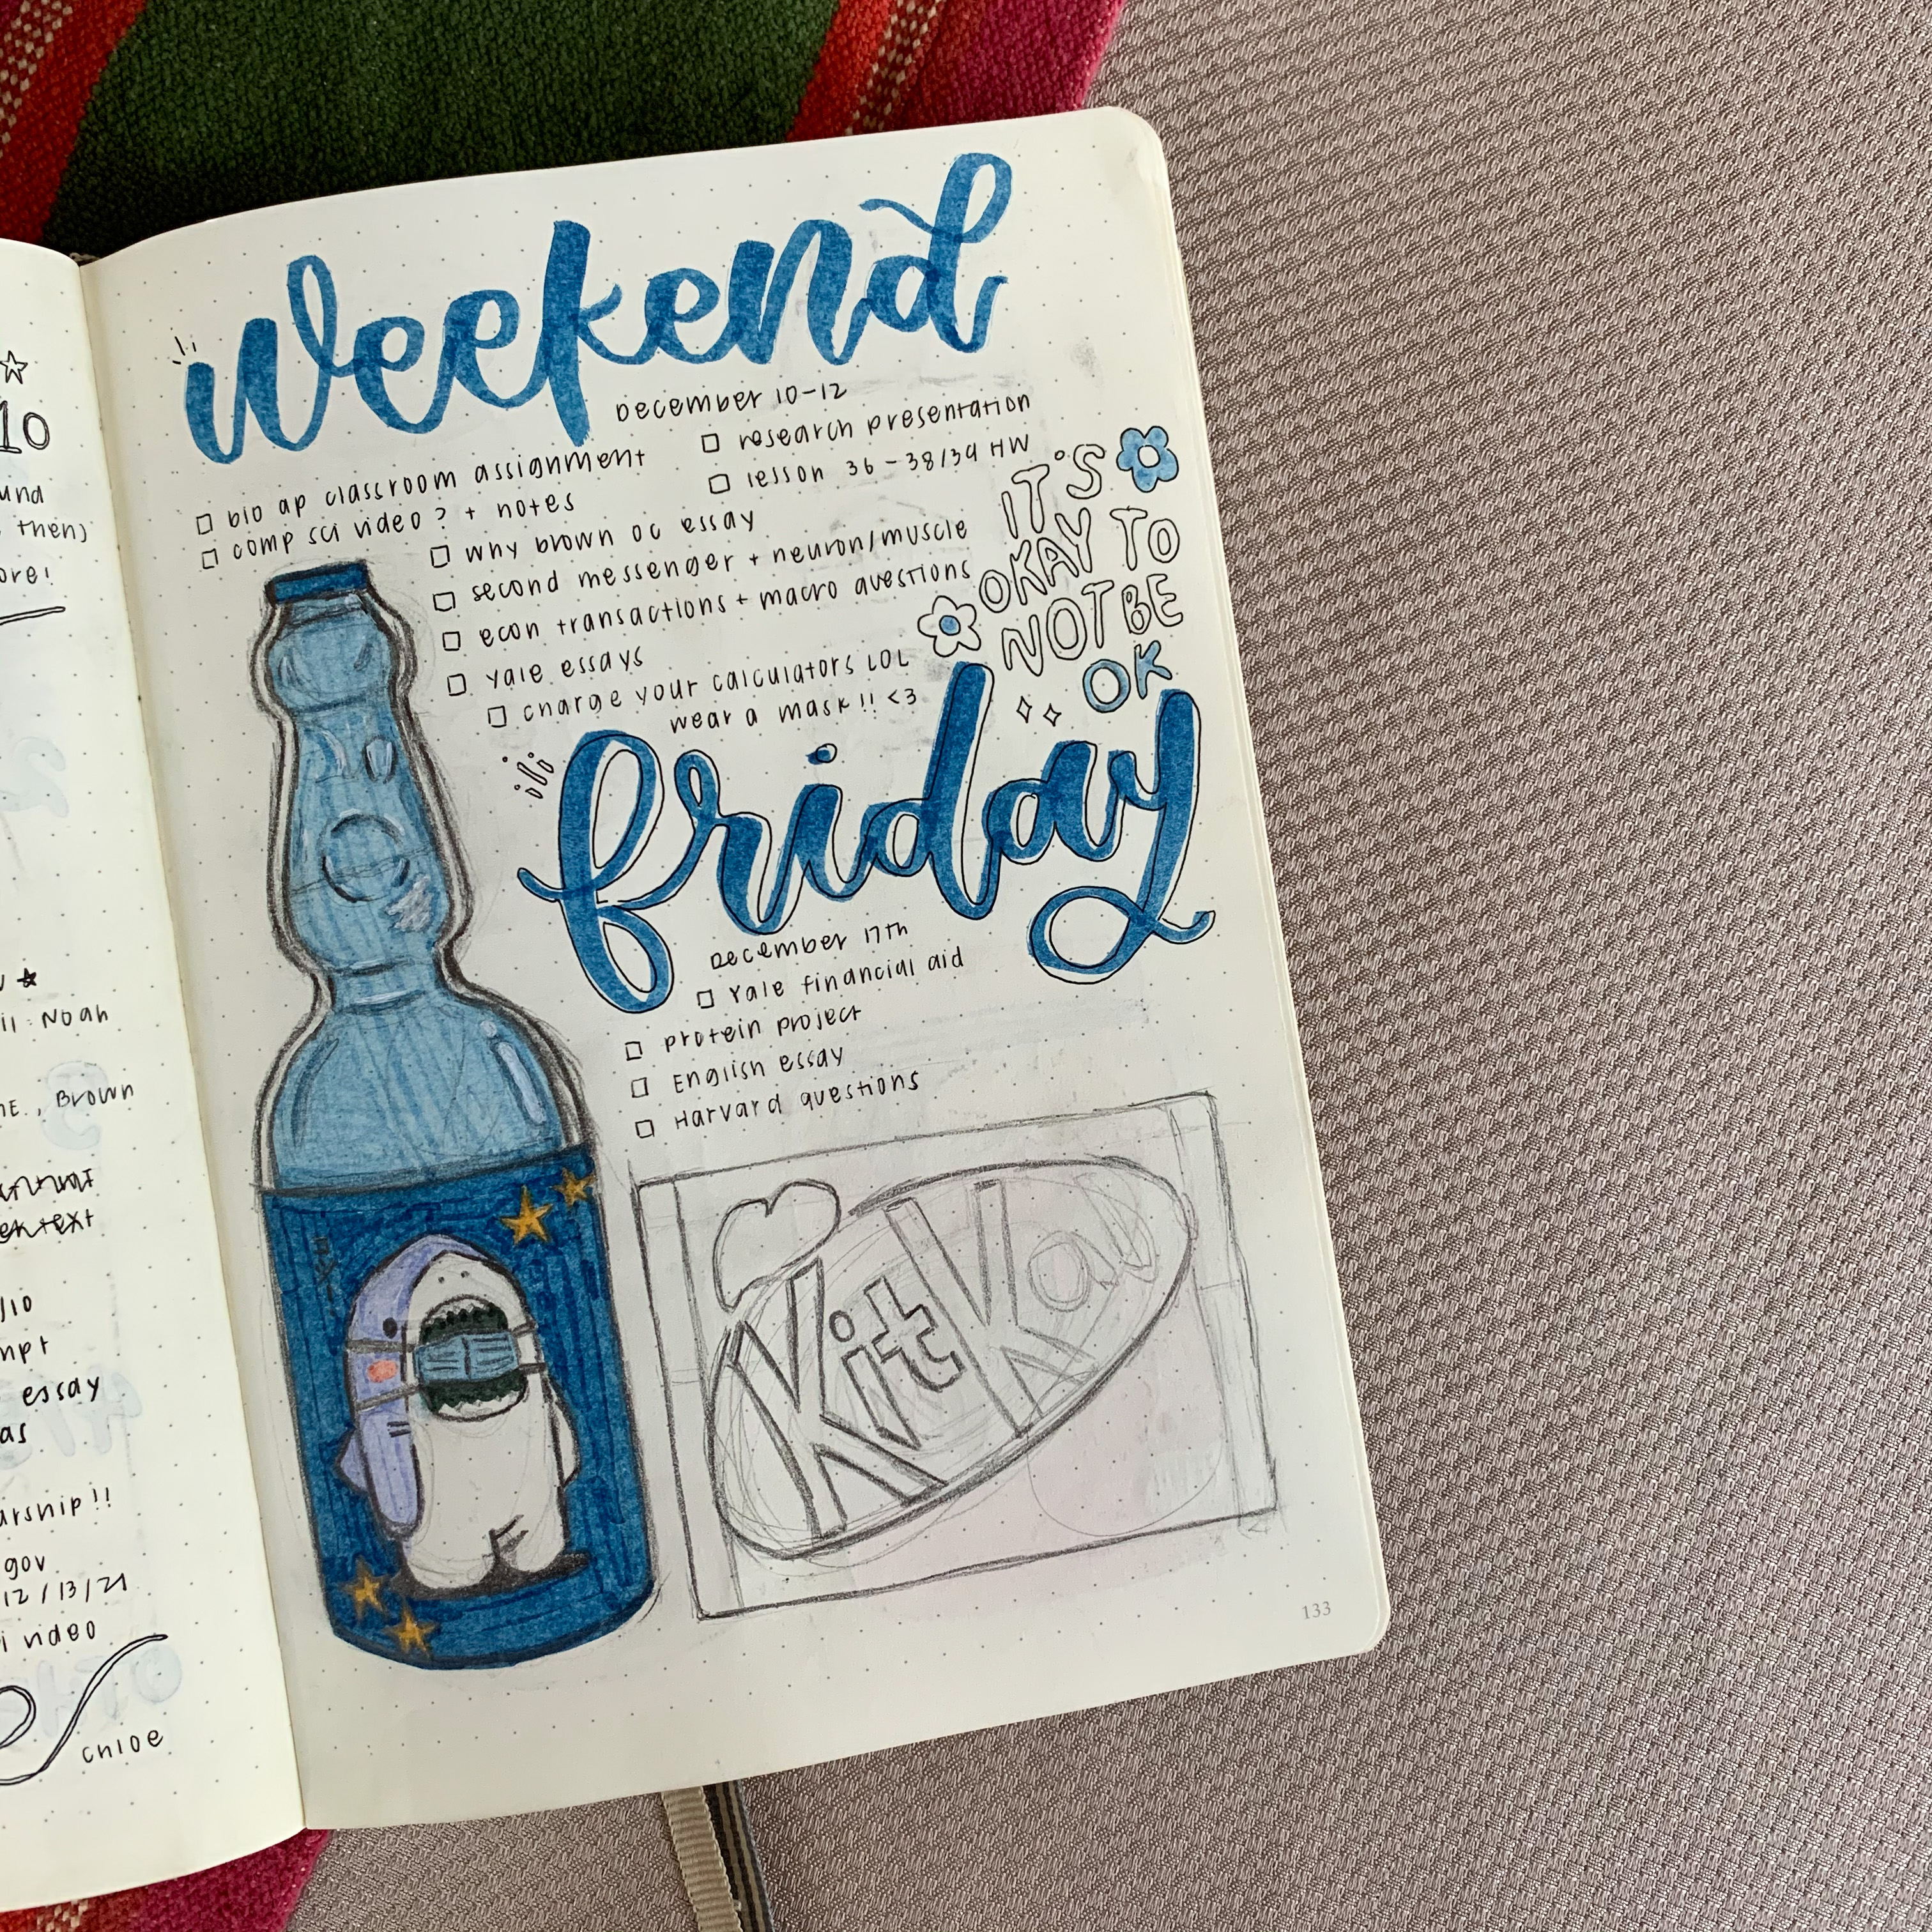 10
und
then)
ore!
Noah
Brown
/10
mpt
essay
as
arship!!
gov
12/13/21
i video
chloe
weekend
December 10-12
bio ap classroom assignment
comp sci video? + notes
research presentation
lesson 36-38/39 HW
why brown oc essay
second messenger + neuron/muscle
econ transactions + macro questions
yale essays
charge your calculators LOL
wear a mask!! <3
IT'S
OKAY TO
NOT BE
OK
friday
December 17th
Yale financial aid
protein project
English essay
Harvard questions
KitKat
133